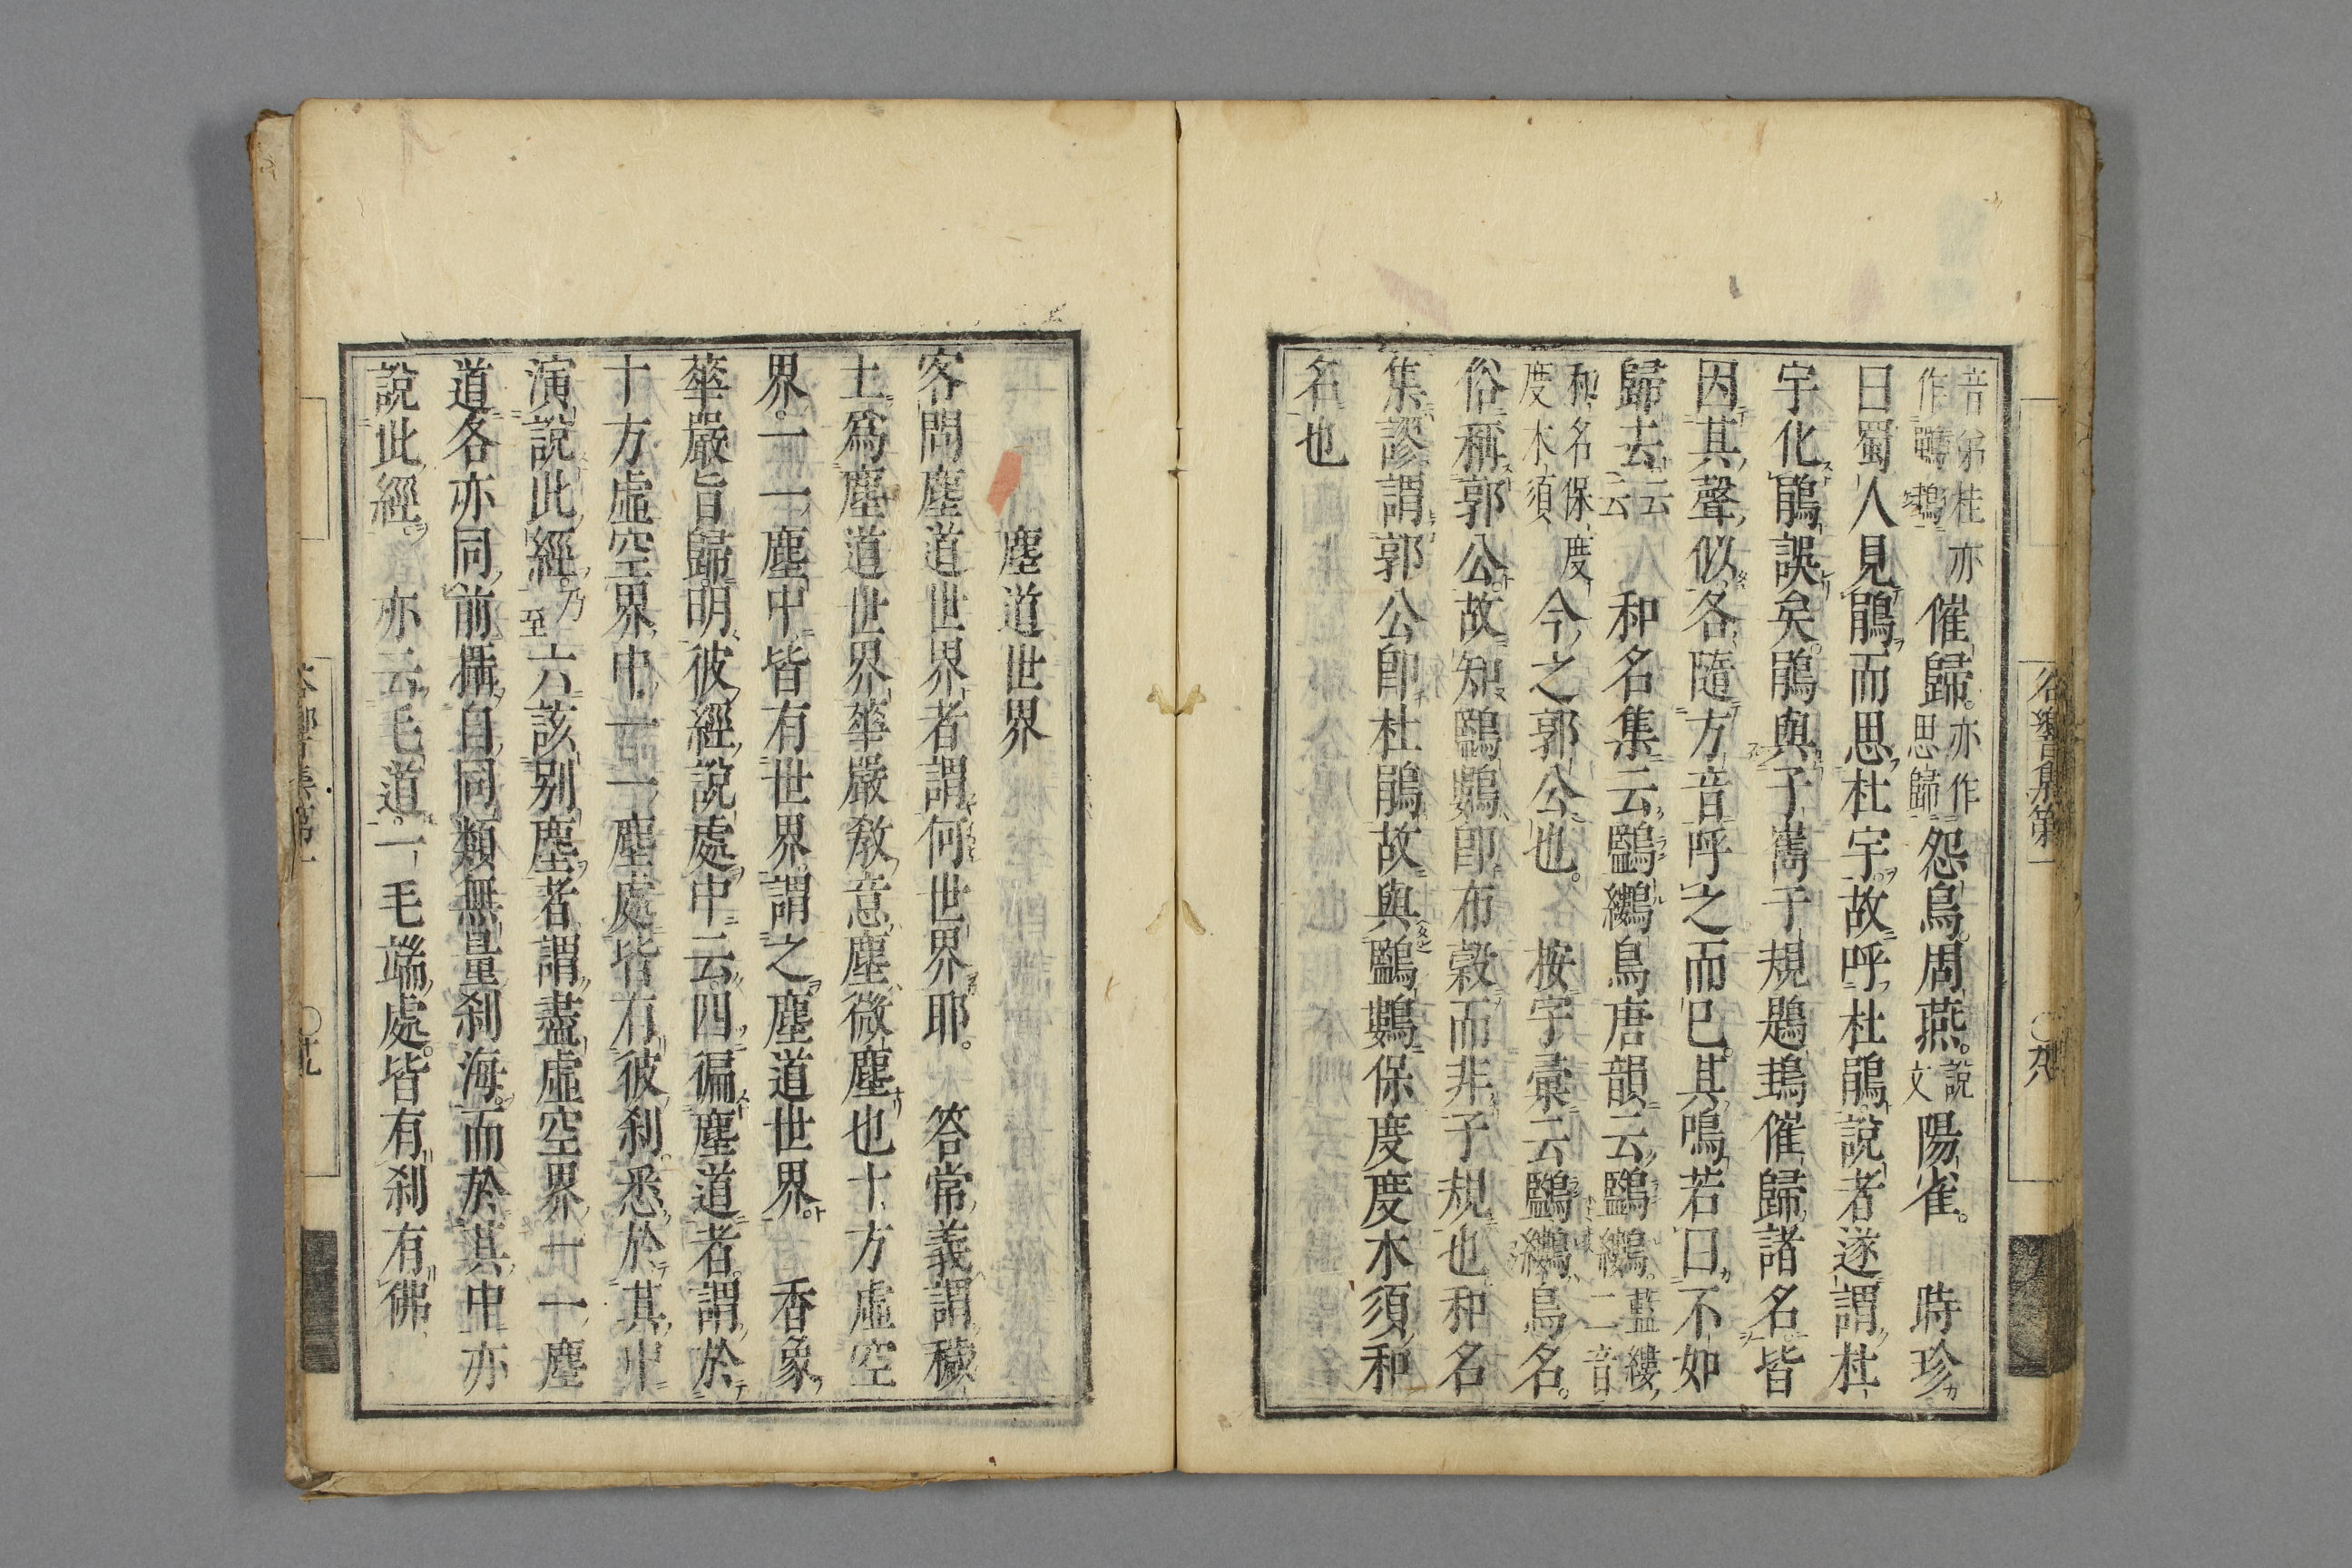 音弟桂亦
作鶗鴂 催歸。亦作思歸 怨鳥。周燕。說文 陽雀。 時珍
曰蜀人見鵑而思杜宇故呼杜鵑說者遂謂杜
宇化鵑誤矣。鵑與子嶲子規鶗鴂催歸諸名皆
因其聲似各隨方音呼之而已。其鳴若曰不如
歸去云云 和名集云鷗鷜鳥唐韻云鷗鷜。藍縷二音
和名保度度木須 今之郭公也。 按字彙云鷗鷜鳥名。
俗稱郭公故知鷗鷜卽布穀而非子規也和名
集謬謂郭公卽杜鵑故與鷗鷜保度度木須和
名也
谷響集第一 〇九
塵道世界
客問塵道世界者謂何世界耶。 答常義謂穢
土爲塵道世界華嚴敎意塵微塵也十方虛空
界。一一塵中皆有世界謂之塵道世界。 香象
華嚴旨歸明彼經說處中云四徧塵道者。謂於
十方虛空界中一一塵處皆有彼刹。悉於其中
演說此經。乃至六該別塵者謂盡虛空界一一塵
道各亦同前攝自同類無量刹海。而於其中亦
說此經。 亦云毛道。一毛端處。皆有刹有佛